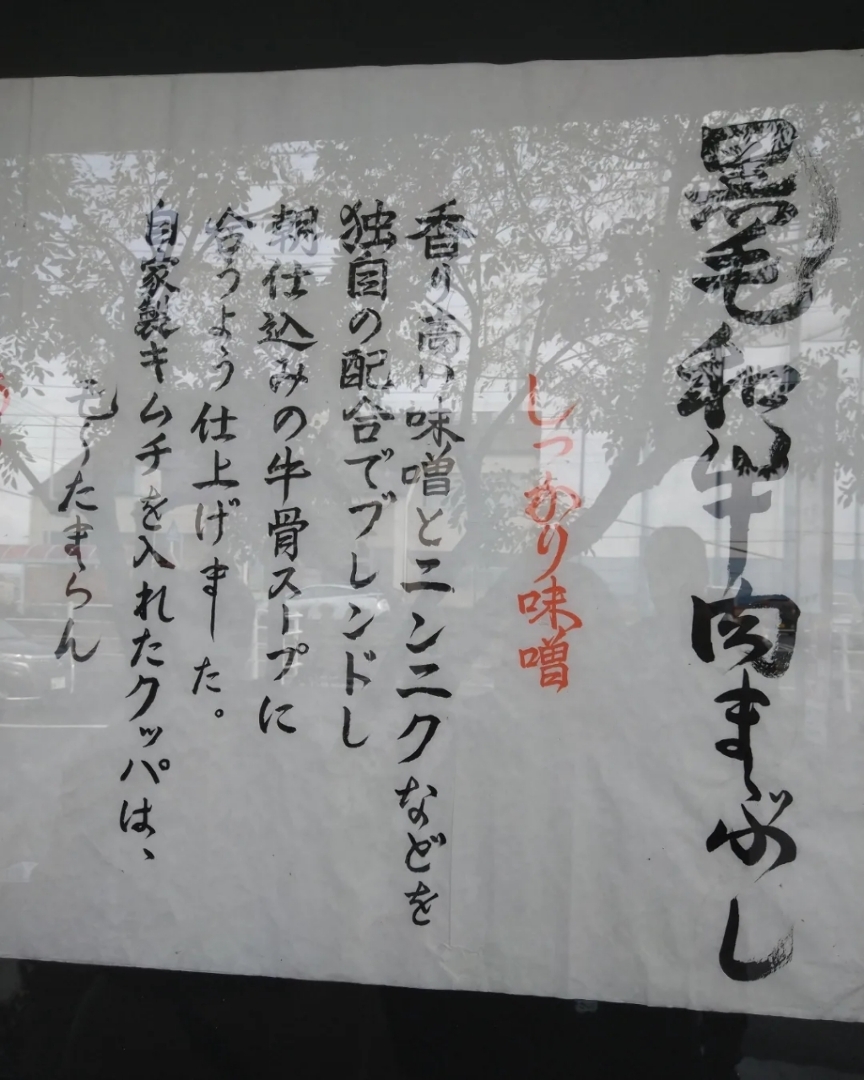 黒毛和牛肉まぶし
しっかり味噌
香り高い味噌とニンニクなどを
独自の配合でブレンドし
朝仕込みの牛骨スープに
合うよう仕上げました。
自家製キムチを入れたクッパは、
もうたまらん